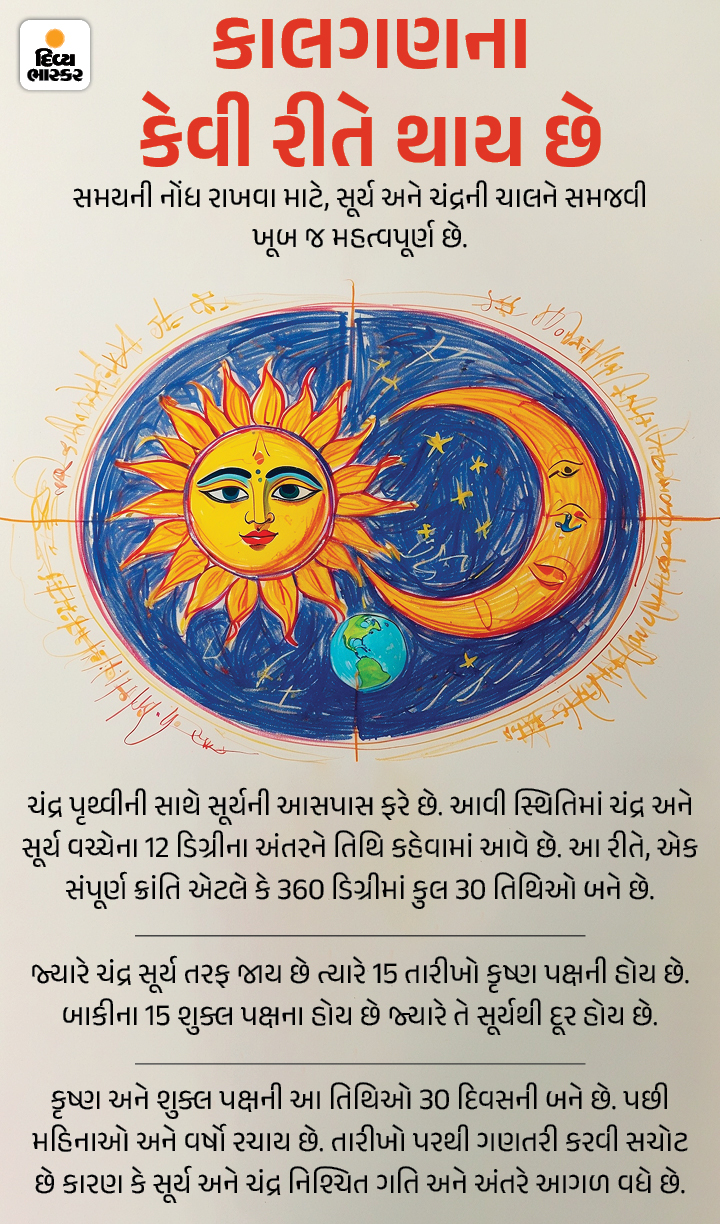 દિવ્ય
ભાસ્કર
કાલગણના
કેવી રીતે થાય છે
સમયની નોંધ રાખવા માટે, સૂર્ય અને ચંદ્રની ચાલને સમજવી
ખૂબ જ મહત્વપૂર્ણ છે.
ચંદ્ર પૃથ્વીની સાથે સૂર્યની આસપાસ ફરે છે. આવી સ્થિતિમાં ચંદ્ર અને
સૂર્ય વચ્ચેના 12 ડિગ્રીના અંતરને તિથિ કહેવામાં આવે છે. આ રીતે, એક
સંપૂર્ણ ક્રાંતિ એટલે કે 360 ડિગ્રીમાં કુલ 30 તિથિઓ બને છે.
જ્યારે ચંદ્ર સૂર્ય તરફ જાય છે ત્યારે 15 તારીખો કૃષ્ણ પક્ષની હોય છે.
બાકીના 15 શુક્લ પક્ષના હોય છે જ્યારે તે સૂર્યથી દૂર હોય છે.
કૃષ્ણ અને શુક્લ પક્ષની આ તિથિઓ 30 દિવસની બને છે. પછી
મહિનાઓ અને વર્ષો રચાય છે. તારીખો પરથી ગણતરી કરવી સચોટ
છે કારણ કે સૂર્ય અને ચંદ્ર નિશ્ચિત ગતિ અને અંતરે આગળ વધે છે.